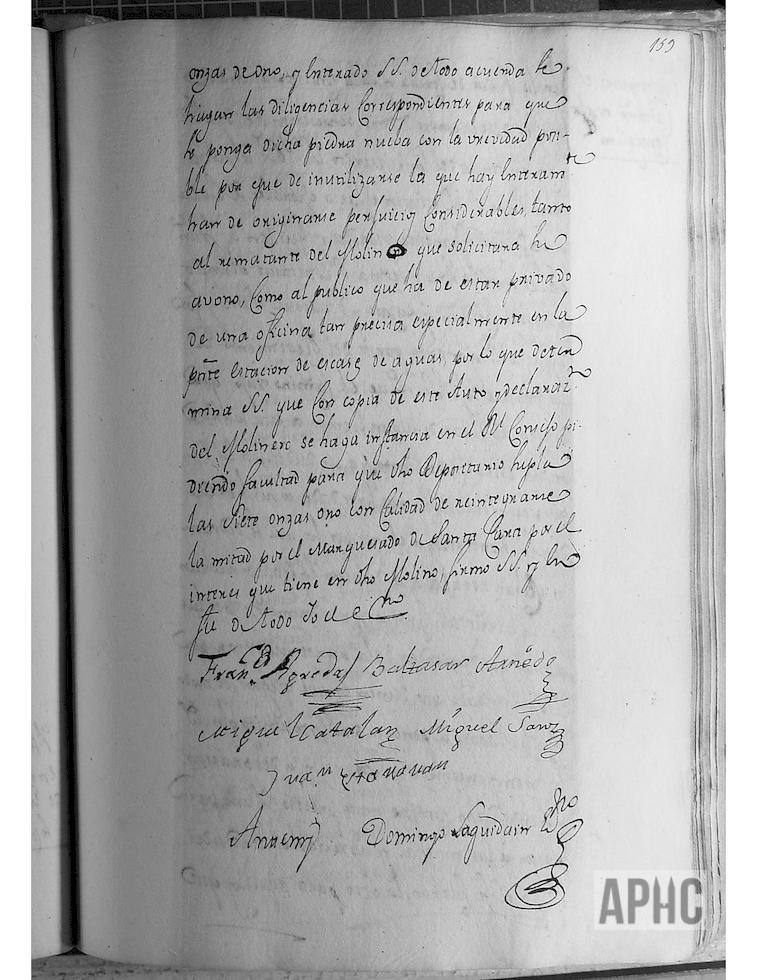 159
onzas de oro, y Enterado SS. de todo acuerda se
hagan las diligencias Correspondientes para que
se ponga dicha piedra nueba con la vrevedad posi-
ble por que de inutilizarse la que hay Enteramte
han de originarse perjuicios Considerables, tanto
al rematante del Molino que solicitara su
avono, Como al publico que ha de estar privado
de una oficina tan precisa especialmente en la
pnte estacion de escasez de aguas, por lo que deter
mina SS. que Con copia de este Auto y declarazn
del Molinero se haga instancia en el Rl Consejo pi-
diendo facultad para que dho Depositario supla
las siete onzas oro con Calidad de reintegrarse
la mitad por el Marquesado de Santa Cara por el
interes que tiene en dho Molino, firmo SS. y En
fee de todo Yo el Esno
Franco Agreda Baltasar Arnedo
Miguel Catalan Miguel Sanz
Juan
Antemi Domingo Laguidain Esno
APHC